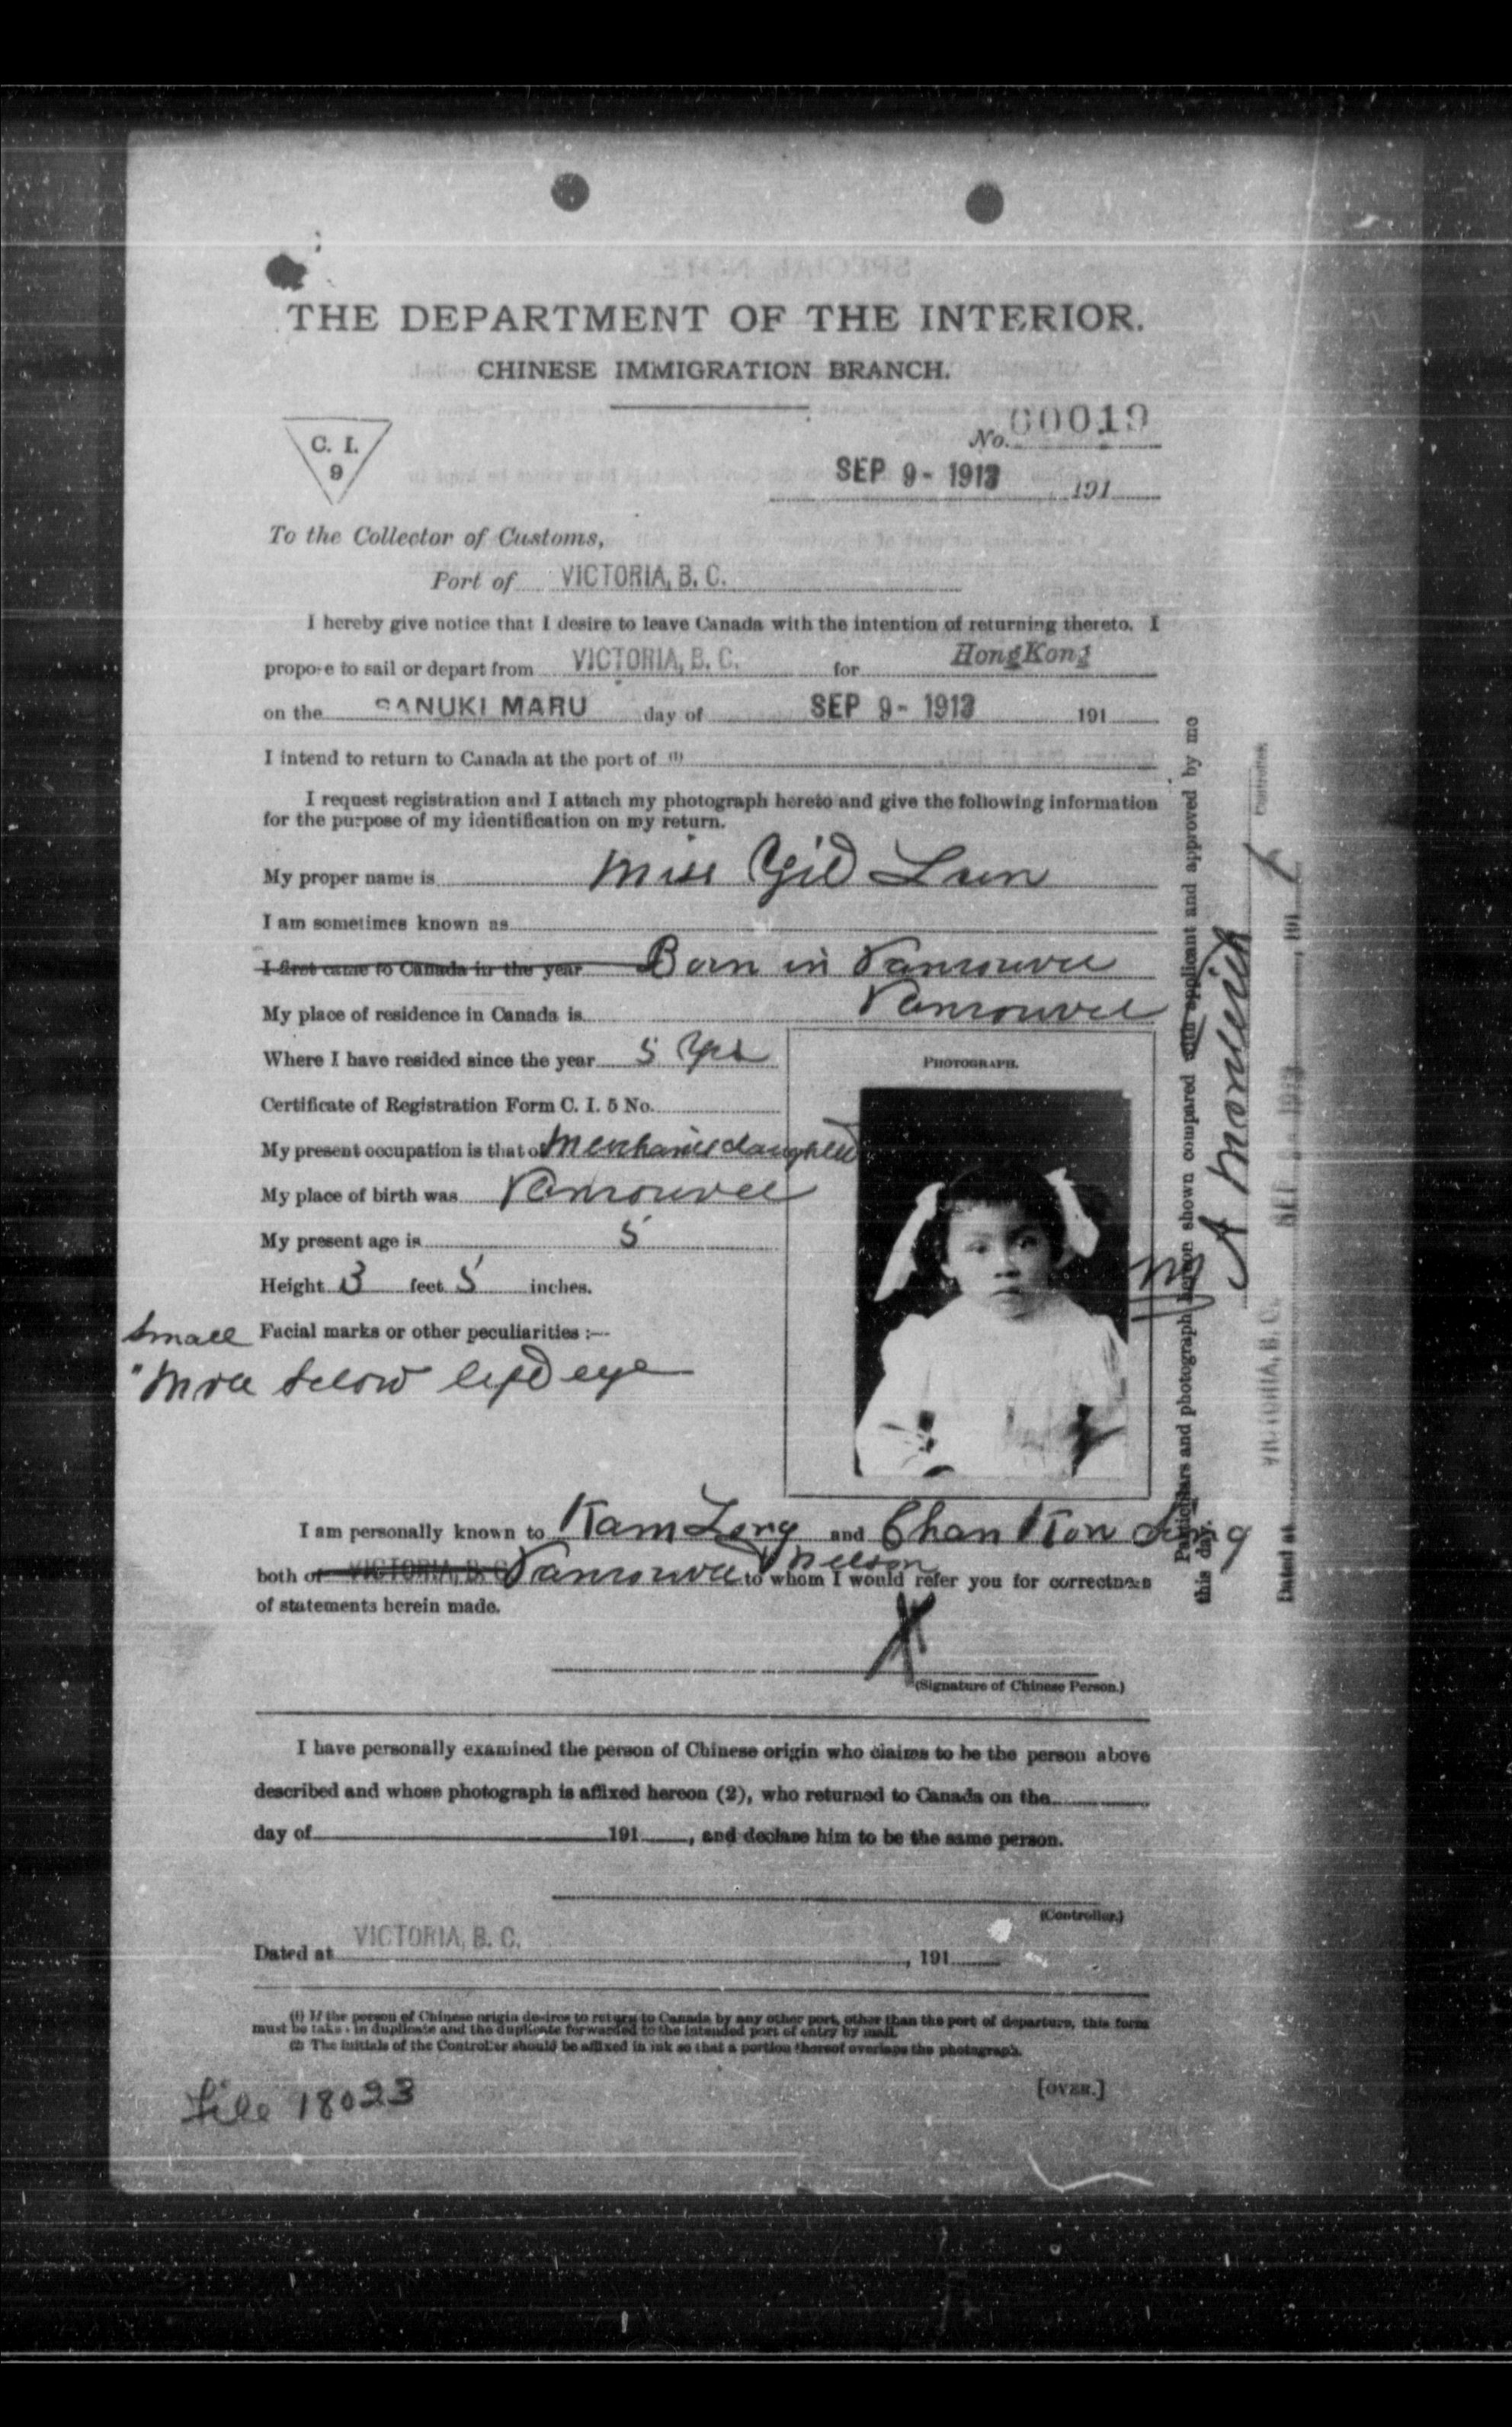 THE DEPARTMENT OF THE INTERIOR.
CHINESE IMMIGRATION BRANCH.
C. I.
9
No. 00019
SEP 9- 1913 191
To the Collector of Customs,
Port of VICTORIA, B. C.
I hereby give notice that I desire to leave Canada with the intention of returning thereto. I
propose to sail or depart from VICTORIA, B. C. for HongKong
on the SANUKI MARU day of SEP 9- 1913 191
I intend to return to Canada at the port of (1)
I request registration and I attach my photograph hereto and give the following information
for the purpose of my identification on my return.
My proper name is Miss Yid Lun
I am sometimes known as
I first came to Canada in the year Born in Vancouver
My place of residence in Canada is Vancouver
Where I have resided since the year 5 Yrs
PHOTOGRAPH.
Certificate of Registration Form C. I. 5 No.
My present occupation is that of Merchants daughter
My place of birth was Vancouver
My present age is 5
Height 3 feet 5 inches.
Facial marks or other peculiarities :—
Small
Mole below left eye
I am personally known to Kam Long and Chan Kon
both of VICTORIA, B. C. Vancouver & Nelson to whom I would refer you for correctness
of statements herein made.
X
(Signature of Chinese Person.)
I have personally examined the person of Chinese origin who claims to be the person above
described and whose photograph is affixed hereon (2), who returned to Canada on the
day of 191 , and declare him to be the same person.
(Controller.)
Dated at VICTORIA, B. C. , 191
(1) If the person of Chinese origin desires to return to Canada by any other port, other than the port of departure, this form
must be taken in duplicate and the duplicate forwarded to the intended port of entry by mail.
(2) The initials of the Controller should be affixed in ink so that a portion thereof overlaps the photograph.
[OVER.]
File 18023
Particulars and photograph hereon shown compared with applicant and approved by me
this day.
A Monteith
Controller.
Dated at VICTORIA, B. C. SEP 9- 1913 , 191